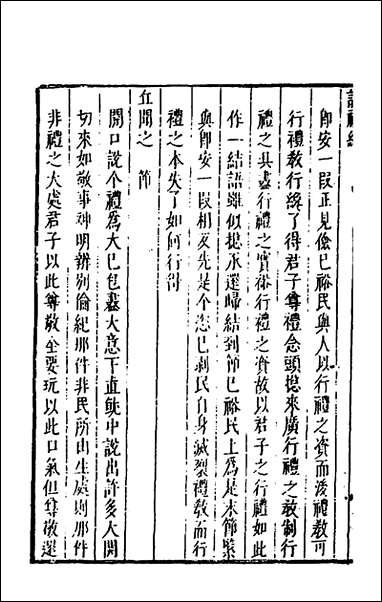 即安一段正見儉已裕民與人以行禮之資而後禮教可
行禮教行纔了得君子尊禮念頭摠來廣行禮之教制行
禮之具盡行禮之實裕行禮之資故以君子之行禮如此
作一結語雖似摠承還歸結到節已裕民上為是末節緊
與即安一段相反先是个恣已剝民自身滅裂禮教而行
禮之本失了如何行得
丘聞之 節
開口說个禮為大已包盡大意下直就中說出許多大關
切來如敬事神明辨列倫紀那件非民所由生處則那件
非禮之大處君子以此尊敬至要玩以此口氣但尊敬還